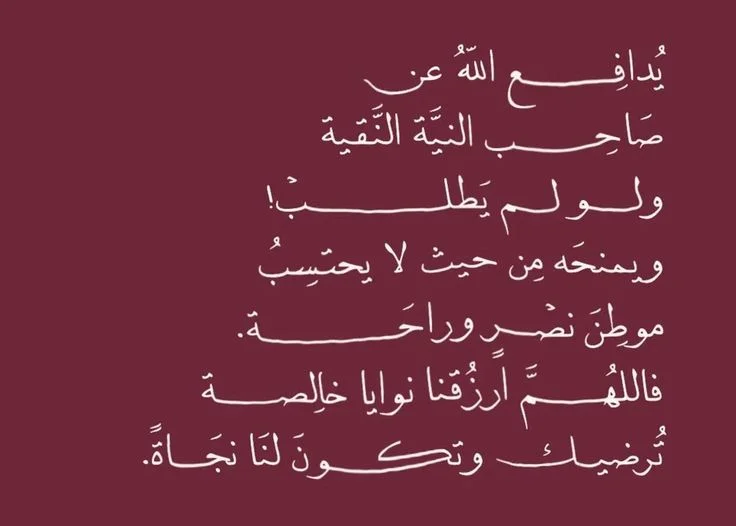 يُدافِـــــع اللّهُ عن
صَاحِـــــب النيَّة النَّقية
ولـــو لـــم يَطلـــــبْ!
ويمنحَه مِن حيث لا يحتسِبُ
موطِنَ نصْـــر وراحَـــــة.
فاللهُـــمَّ ارزُقنا نوايا خالِصـــــة
تُرضيـــك وتكـــونَ لنَا نجَـــاةً.